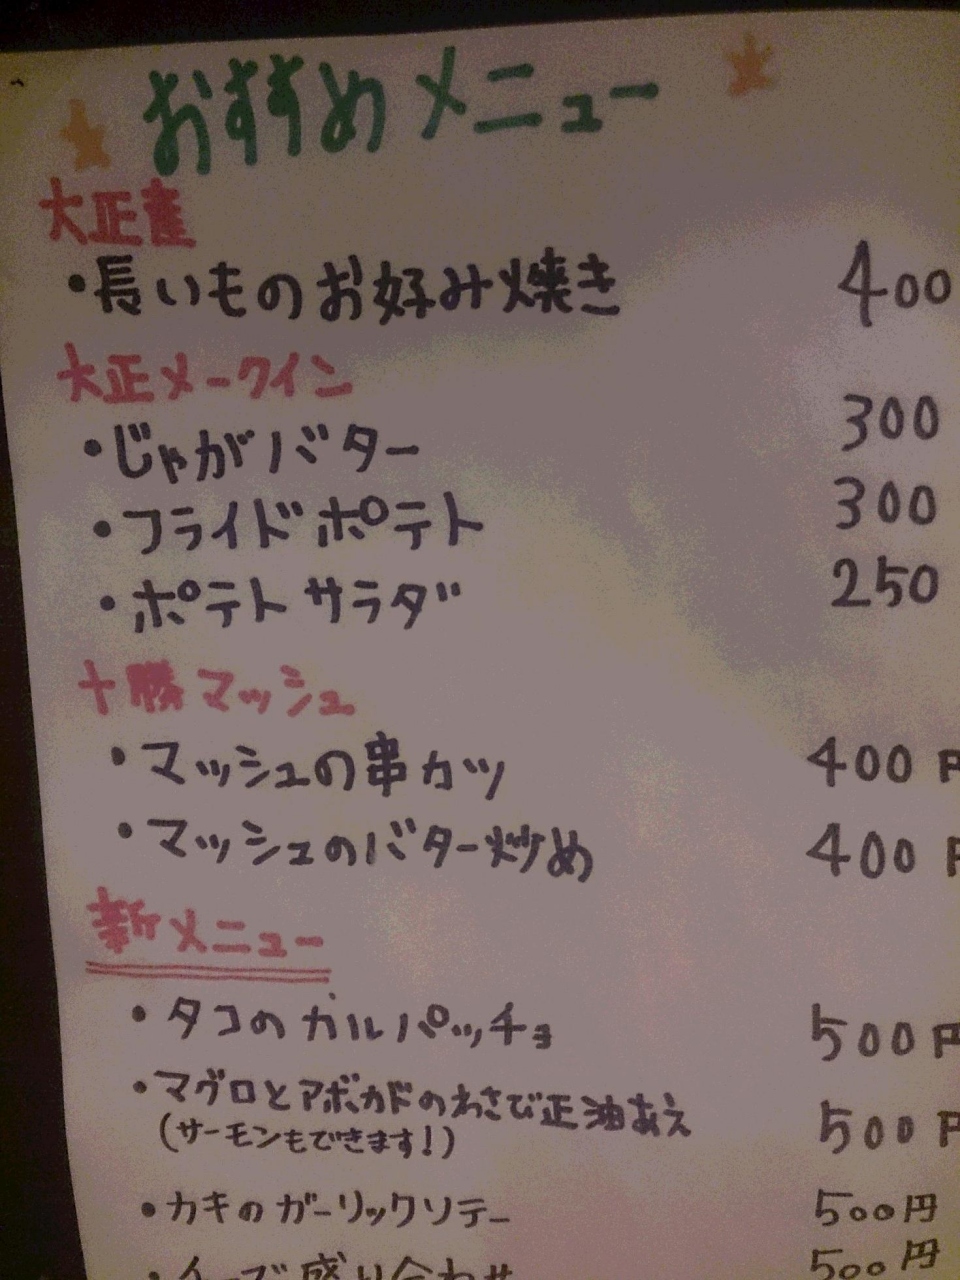 おすすめメニュー
大正産
・長いものお好み焼き 400
大正メークイン
・じゃがバター 300
・フライドポテト 300
・ポテトサラダ 250
十勝マッシュ
・マッシュの串カツ 400円
・マッシュのバター炒め 400円
新メニュー
・タコのカルパッチョ 500円
・マグロとアボカドのわさび正油あえ 500円
(サーモンもできます!)
・カキのガーリックソテー 500円
・チーズ盛り合わせ 500円